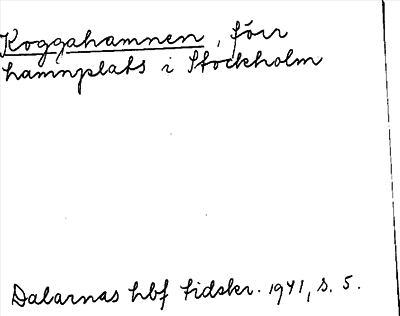 Koggahamnen, förr
hamnplats i Stockholm
Dalarnas hbf tidskr. 1941, s. 5.